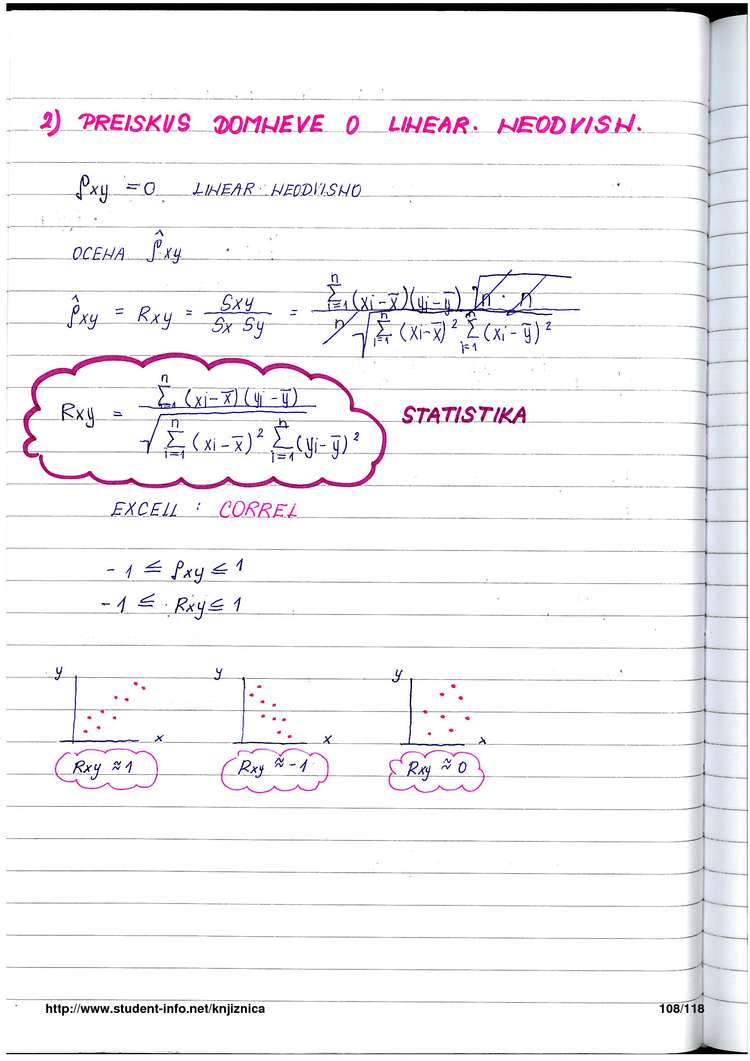 2) PREISKUS DOMNEVE O LINEAR. NEODVISN.
ρxy = 0 LINEAR. NEODVISNO
OCENA ρ̂xy
ρ̂xy = Rxy = Sxy / (Sx Sy) = ∑ⁿᵢ₌₁ (xi - x̄)(yi - ȳ) √(n · n) / (n √(∑ⁿᵢ₌₁ (xi - x̄)² ∑ⁿᵢ₌₁ (xi - ȳ)²))
Rxy = ∑ⁿᵢ₌₁ (xi - x̄)(yi - ȳ) / √(∑ⁿᵢ₌₁ (xi - x̄)² ∑ⁿᵢ₌₁ (yi - ȳ)²) STATISTIKA
EXCELL : CORREL
-1 ≤ ρxy ≤ 1
-1 ≤ Rxy ≤ 1
y x y x y x
Rxy ≈ 1 Rxy ≈ -1 Rxy ≈ 0
http://www.student-info.net/knjiznica 108/118